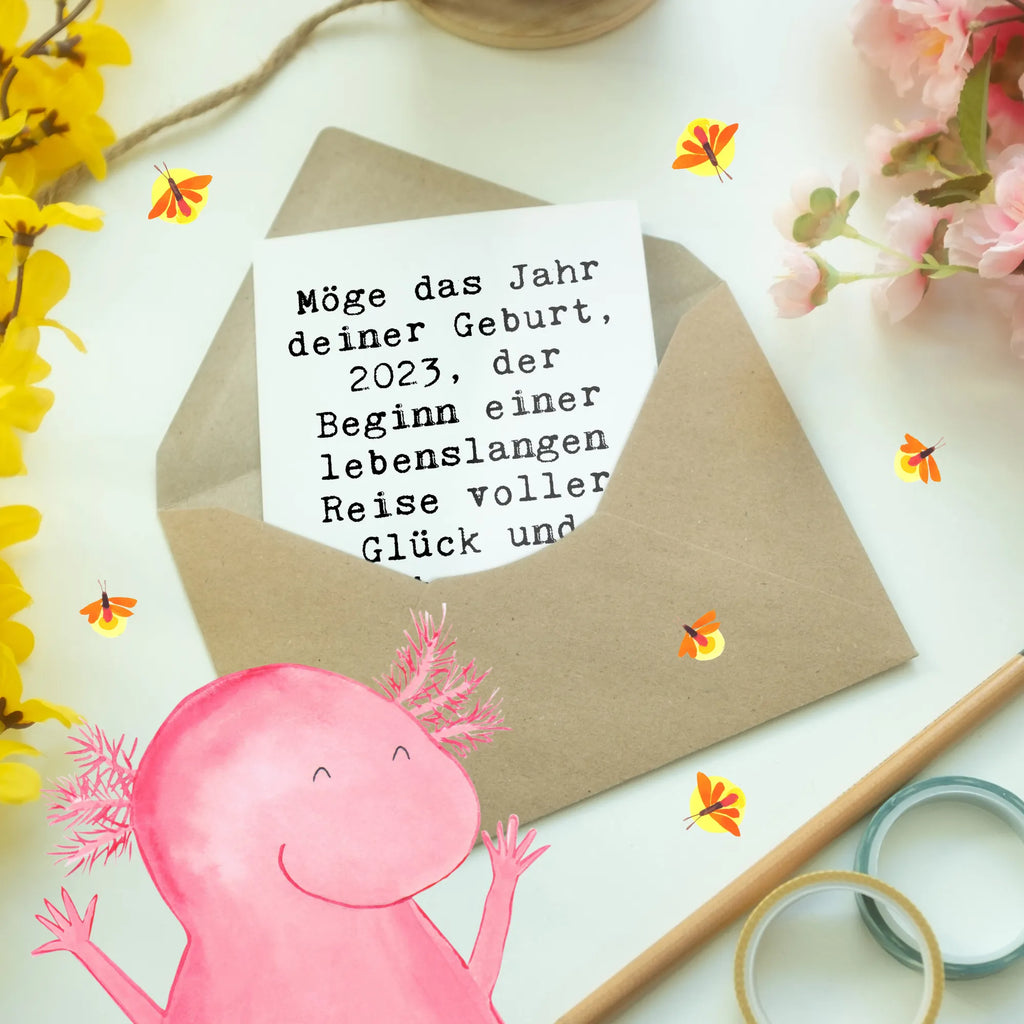 Möge das Jahr
deiner Geburt,
2023, der
Beginn einer
lebenslangen
Reise voller
Glück und